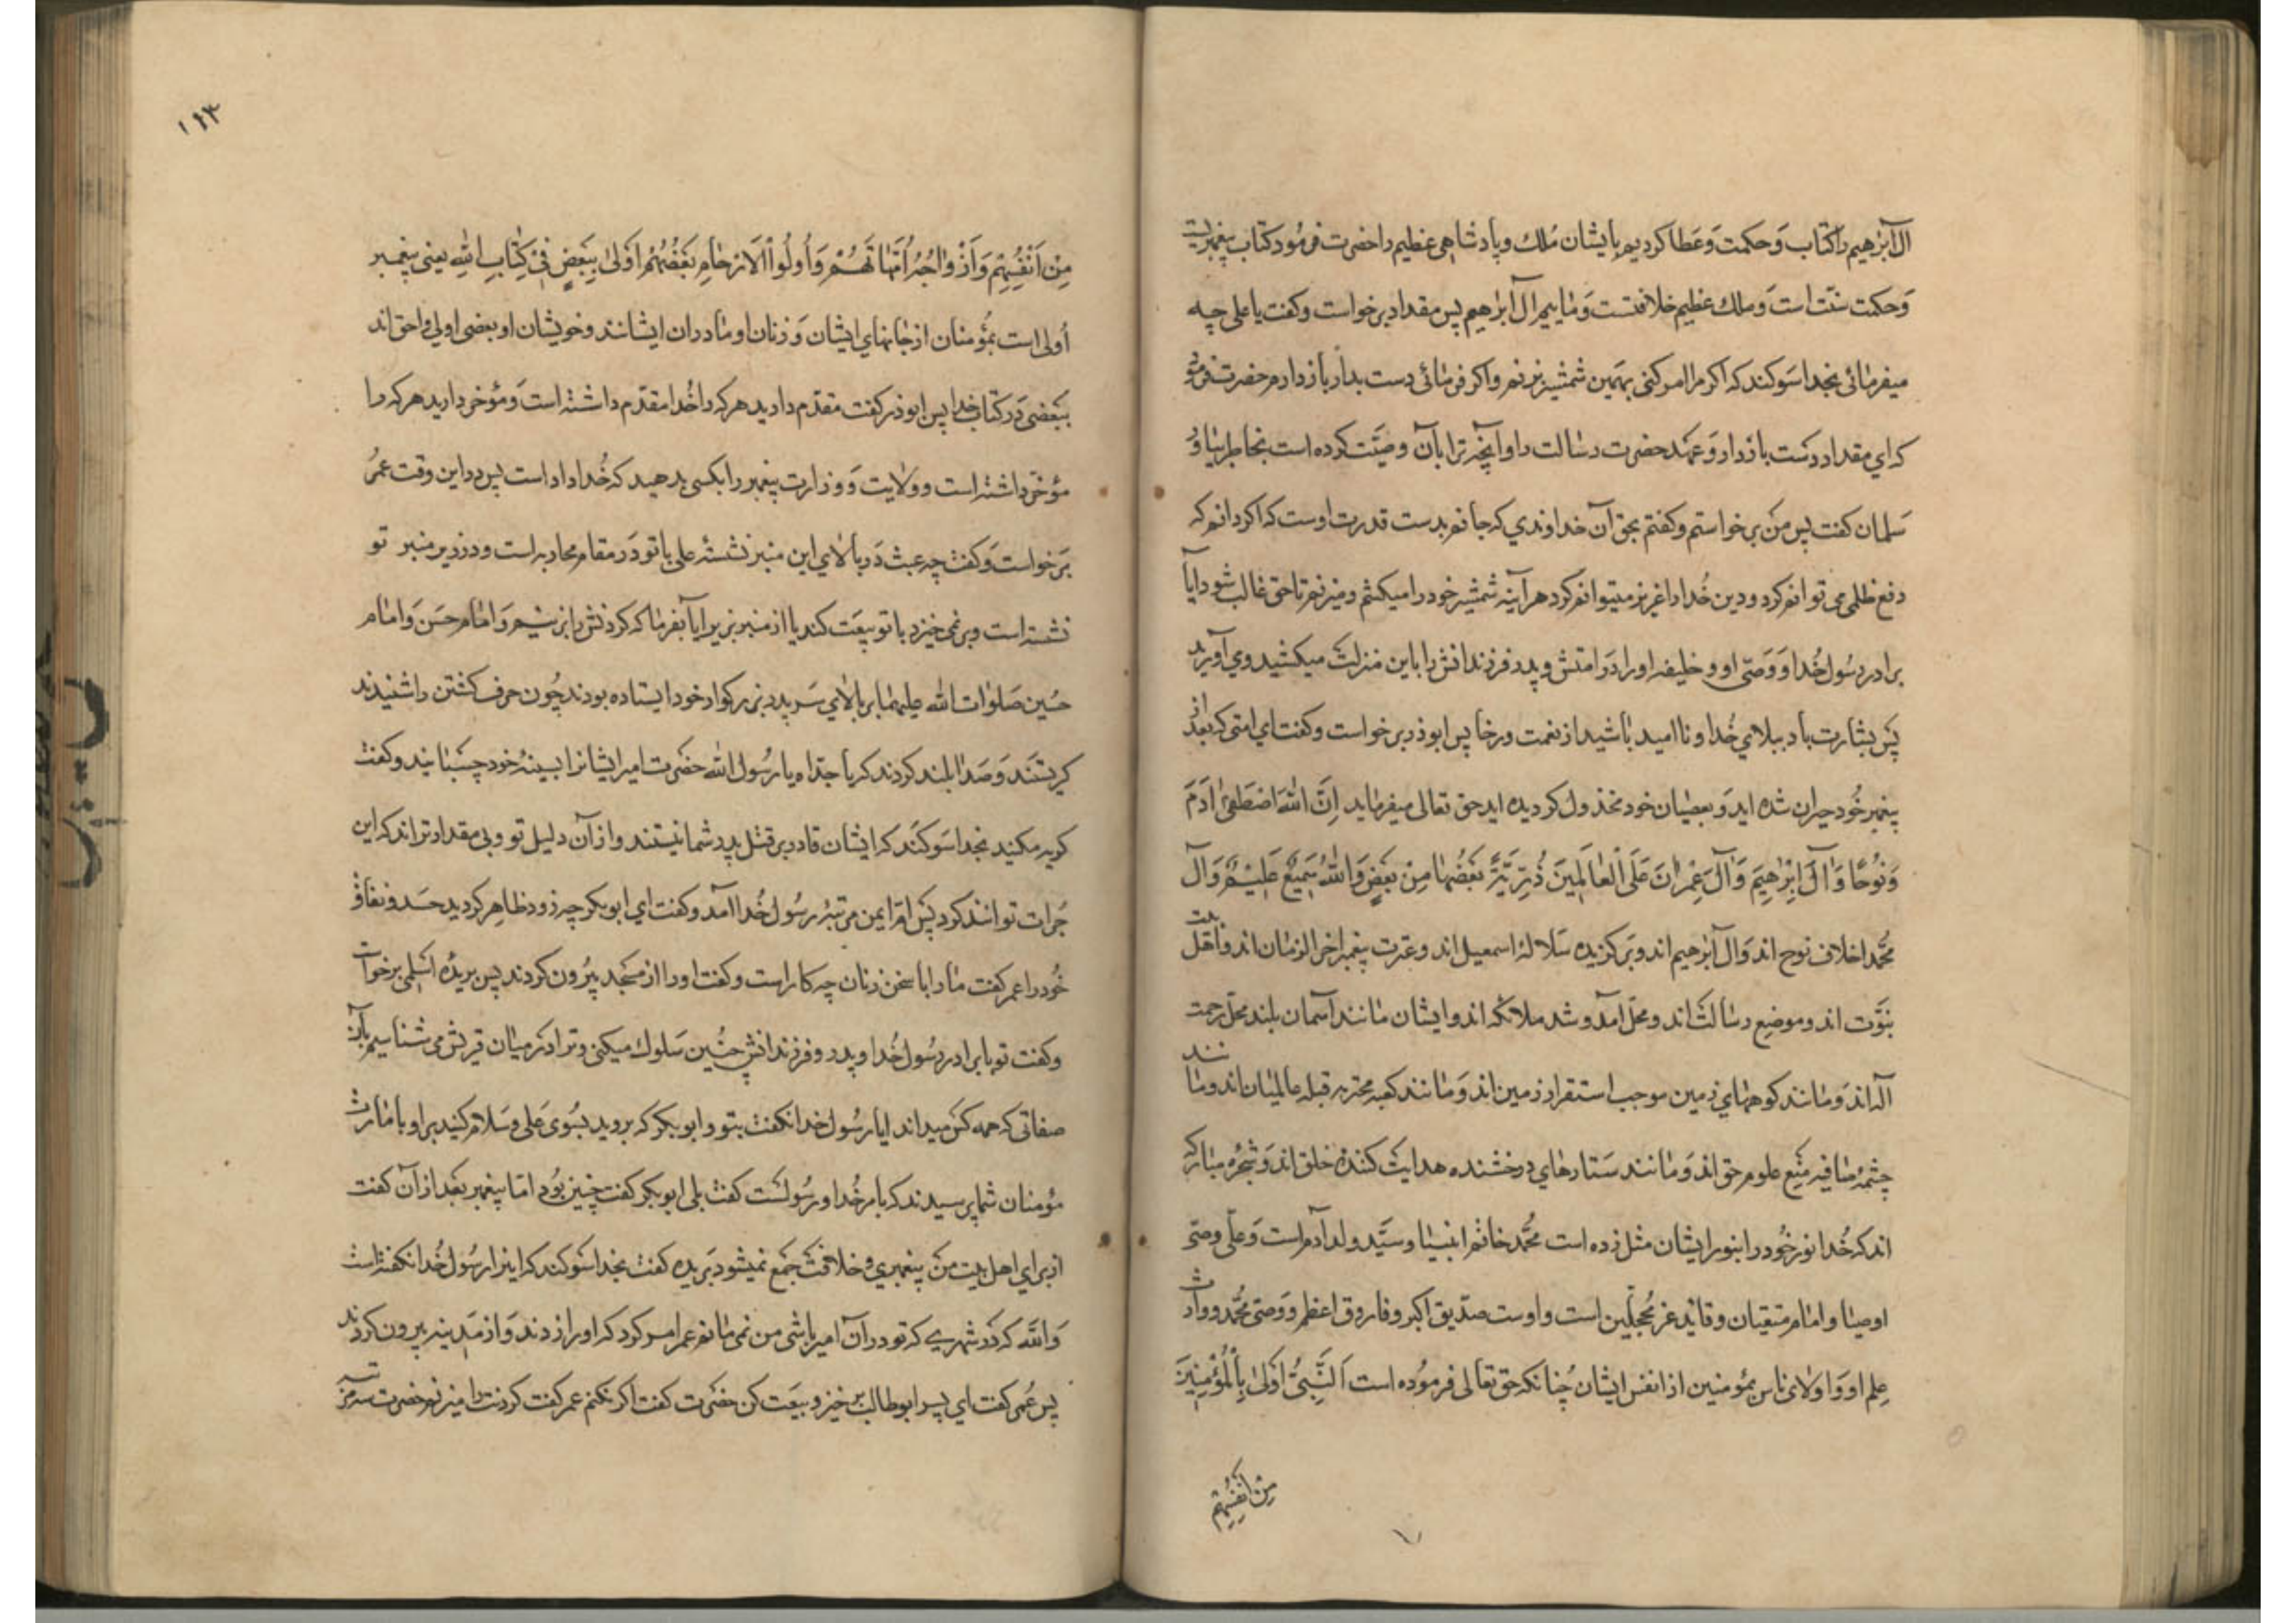 آل ابرٰهیم را کتاب وَحکمت وَعطا کردیم بایشان مُلك وپادشاهی عظیم را حضرت فرمود کتاب پیغمبریست
وَحکمت سنّت است وَملك عظیم خلافتست وَمٰاییم آل ابرٰهیم پس مقداد برخواست وکفت یا علی چه
میفرمٰائی بخدا سَوکند که اکر مرا امر کنی بهَمین شمشیر بزنم واکر فرمٰائی دست بدار بازدارم حضرت فرمود
که ای مقداد دست بازدار وَعهد حضرت رسالت را وآنچه ترا بآن وصیّت کرده است بخاطر بیاور
سَلمان کفت پس من برخواستم وکفتم بحق آن خداوندي که جانم بدست قدرت اوست که اکر دانم که
دفع ظلمی می توانم کرد ودین خُدا را عزیز میتوانم کرد هرآینه شمشیر خود را میکشم ومیزنم تا حق غالب شود ایا
برادر رسُول خُدا وَوَصّی او و خلیفه او را دَر امتش وپدر فرزندانش را باین منزلت میکشید ومی آورید
پس بشارت باد ببلاي خُدا و ناامید باشید از نعمت ورخا پس ابوذر برخواست وکفت اي امتی که بعد از
پیغمبر خُود حیران شده اید وَبعصیان خود مخذول کردیده اید حق تعالی میفرماید اِنَّ اللّٰهَ اصْطَفیٰ اٰدَمَ
وَنُوحًا وَاٰلَ اِبْرٰهِیمَ وَاٰلَ عِمْرٰانَ عَلَی الْعٰالَمِینَ ذُرِّیَّةً بَعْضُهٰا مِنْ بَعْضٍ وَاللّٰهُ سَمِیعٌ عَلِیمٌ وَآل
محُمّد اخلاف نوح اند وَآل ابرٰهیم اند وبَرکزیده سَلالهٔ اسمعیل اند وعترت پیغمبر آخر الزمٰان اند واهل بیت
نبوّت اند وموضع رسٰالت اند ومحلّ آمد وشد ملائکه اند وایشان مٰانند آسمٰان بلند محلّ رحمت
الٓه اند وَمٰانند کوههٰاي زمین موجب استقرار زمین اند وَمٰانند کعبه محترمه قبله عٰالمیٰان اند ومٰانند
چشمهٔ صٰافیه منبع علوم حق اند وَمٰانند سَتارهاي درخشنده هدایت کنندهٔ خلق اند وَشجرهٔ مبٰارکه
اند که خُدا نور خُود را بنور ایشان مثل زده است محُمّد خاتم انبیٰا وسیّد ولد آدم است وَعلّی وصّی
اوصیٰا وامٰام متقیٰان وقاید غر محجّلین است واوست صدّیق اکبر وفاروق اعظم ووَصّی محُمّد ووارث
علم او وَاولاي ناس بمؤمنین از انفس ایشان چُنانکه حق تعٰالی فرموُده است اَلنَّبِیُّ اَوْلیٰ بِالْمُؤْمِنِینَ
مِنْ اَنْفُسِهِمْ
۱۱۳
مِنْ اَنْفُسِهِمْ وَاَزْوٰاجُهُ اُمَّهٰاتُهُمْ وَاُولُوا الْاَرْحٰامِ بَعْضُهُمْ اَوْلیٰ بِبَعْضٍ فِیْ کِتٰابِ اللّٰهِ یعنی پیغمبر
اُولی است بمؤُمنان از جانهاي ایشان وَزنان او مٰادران ایشانند وخویشان او بعضی اولی واحق اند
ببَعضی دَر کتاب خدا پس ابوذر کفت مقدّم دارید هر که را خُدا مقدّم داشته است وَمؤخر دارید هر که را
مؤخر داشته است وولایت وَوزارت پیغمبر را بکسی بدهید که خُدا داده است پس در این وقت عمر
بَرخواست وَکفت چه عبث دَر بالاي این منبر نشستهٔ علی با تو دَر مقام محاربه است ودر زیر منبر تو
نشسته است وبر نمی خیزد با تو بیعَت کند یا از منبر بزیر آیا بفرمٰا که کردنش را بزنیم وَامٰام حسَن وَامٰام
حسُین صَلوٰات اللّٰه علیهمٰا بر بالاي سَر پدر بزرکوار خود ایستاده بودند چُون حرف کشتن را شنیدند
کریستند وَصَدا بلند کردند که یا جدّاه یا رسُول اللّٰه حضَرت امیر ایشانرا بسینهٔ خود چسبٰانید وکفت
کریه مکنید بخدا سَوکند که ایشان قادر بر قتل پدر شمٰا نیستند واز آن ذلیل تر وبی مقدارتراند که این
جُرات توانند کرد پس ام ایمن مربّیهٔ رسُول خُدا آمد وکفت اي ابوبکر چه زود ظٰاهر کردید حسَد ونفاق
خُود را عمر کفت مٰا را با سخن زنان چه کار است وکفت او را از مسَجد بیُرون کردند پس بریدهٔ اسلمی برخواست
وکفت تو با برادر رسُول خُدا وپدر وفرزندانش چنین سَلوك میکنی وترا دَر میٰان قریش می شناسیم بآن
صفاتی که همه کس میداند ایا رسُول خدا نکفت بتو و ابوبکر که بروید بسُوی عَلی وسَلام کنید بر او بامٰارت
مؤمنان شما پرسیدند که بامر خُدا ورسُولست کفت بلی ابوبکر کفت چنین بُود امّا پیغمبر بَعد از آن کفت
از براي اهل بیت من پیغمبري وخلافت جمَع نمیشود بَریده کفت بخدا سَوکند که اینرا رسُول خُدا نکفته است
وَاللّٰه که دَر شهري که تو در آن امیر باشی من نمی مٰانم عمر امر کرد که او را زدند وَاز مَدینه بیرون کردند
پس عُمر کفت اي پسر ابوطالب برخیز وبیعَت کن حضَرت کفت اکر نکنم عمر کفت کردنت را میزنم حضرت سه مرتبه